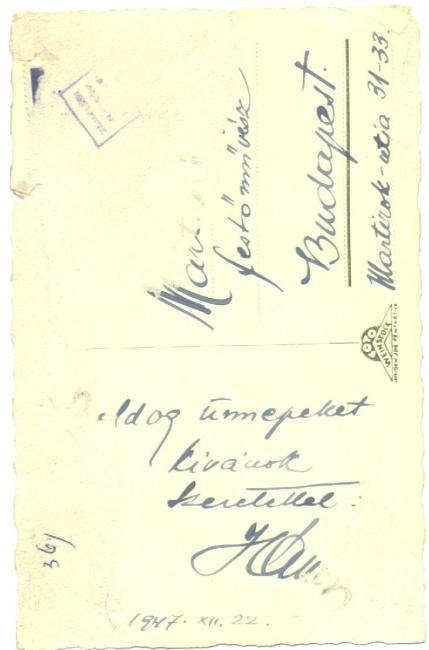 festőművész
Budapest.
Martirok-utja 31-33.
FOTO
WEINSTOCK
oldog ünnepeket
kivánok
szeretettel:
364
1947. XII. 22.